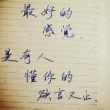 最好的
感觉，
是有人
懂你的
欲言又止。